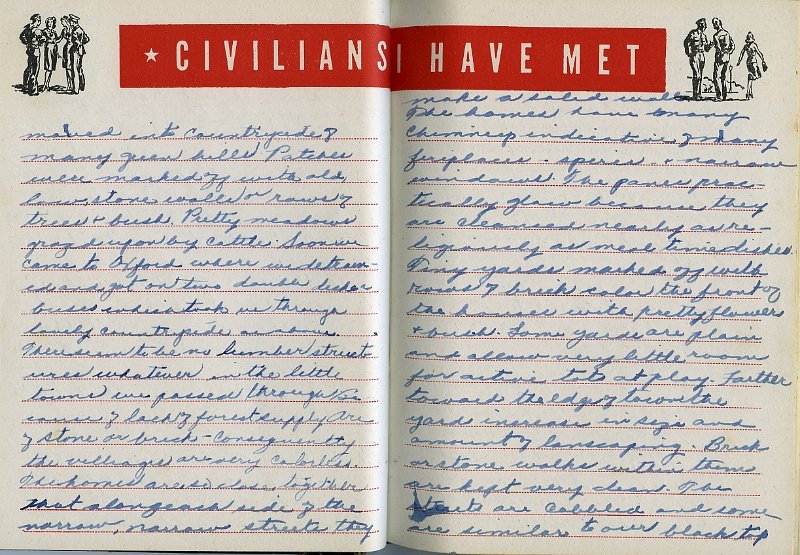 ★ CIVILIANS I HAVE MET
moved into countryside &
many green hills. Patches
were marked off with old
low stone walls or rows of
trees & bush. Pretty meadows
grazed upon by cattle. Soon we
came to Oxford where we detrain-
ed and got on two double decker
buses which took us through
lovely countryside as above.
There seem to be no lumber struct-
ures whatever in the little
towns we passed through be
cause of lack of forest supply. Are
of stone or brick - consequently
the villages are very colorless.
The homes are so close together
that along each side of the
narrow, narrow streets they
make a solid wall.
The homes have many
chimneys indicating many
fireplaces - species - & narrow
windows. The panes prac-
tically glow because they
are cleansed nearly as re-
ligiously as meal time dishes.
Tiny yards marked off with
rows of brick color the front of
the houses with pretty flowers
& bush. Some yards are plain
and allow very little room
for active tots at play. Farther
toward the edge of town the
yard increase in size and
amount of lanscaping. Brick
or stone walks within them
are kept very clean. The
are cobbled and some
are similar to our black top